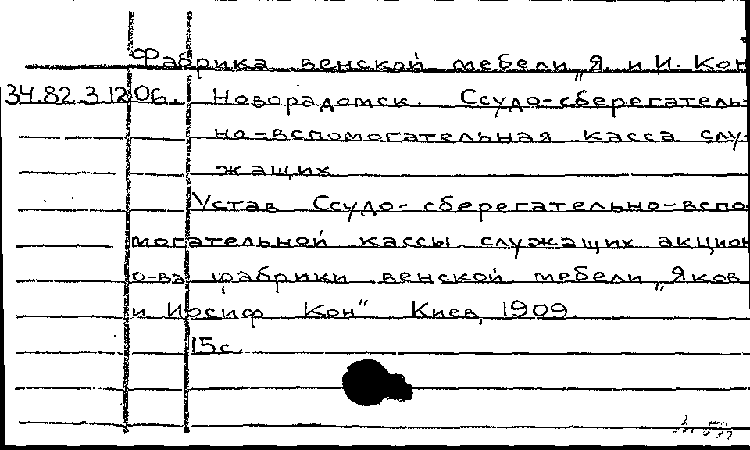 Фабрика венской мебели „Я. и И. Кон
34.82.3.1206. Новорадомск. Ссудо-сберегатель-
но-вспомогательная касса слу-
жащих
Устав Ссудо-сберегательно-вспо-
могательной кассы служащих акцион
о-ва фабрики венской мебели „Яков
и Иосиф Кон" Киев, 1909.
15с.